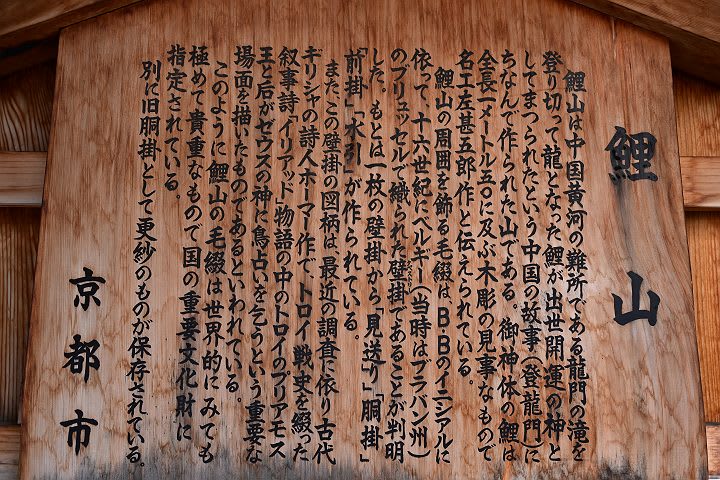 鯉山
鯉山は中国黄河の難所である龍門の滝を
登り切って龍となった鯉が出世開運の神と
してまつられたという中国の故事(登龍門)に
ちなんで作られた山である。御神体の鯉は
全長一メートル五〇に及ぶ木彫の見事なもので
名工左甚五郎作と伝えられている。
鯉山の周囲を飾る毛綴は、B.Bのイニシアルに
依って、十六世紀にベルギー(当時はブラバン州)
のブリュッセルで織られた壁掛であることが判明
した。もとは一枚の壁掛から「見送り」「胴掛」
「前掛」「水引」が作られている。
また、この壁掛の図柄は、最近の調査に依り古代
ギリシャの詩人ホーマー作で、トロイ戦史を綴った
叙事詩「イリアッド」物語の中のトロイのプリアモス
王と后がゼウスの神に鳥占いを乞うという重要な
場面を描いたものであるといわれている。
このように鯉山の毛綴は世界的にみても
極めて貴重なもので国の重要文化財に
指定されている。
別に旧胴掛として更紗のものが保存されている。
京都市